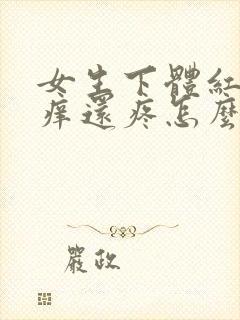 女生下體紅
痒還疼怎麼
嚴政